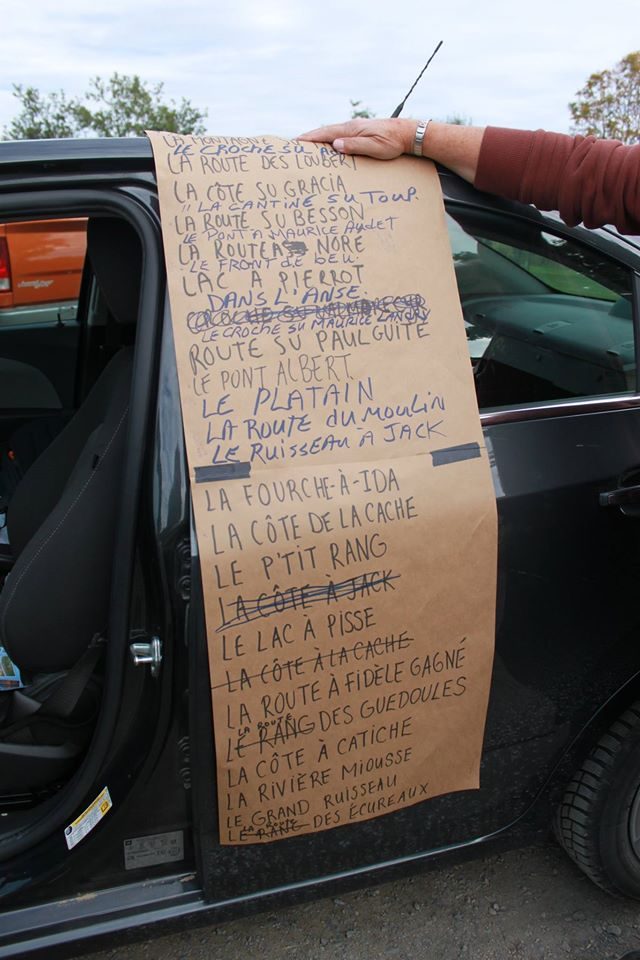 LA MONTAGNE
LE CROCHE SU
LA ROUTE DES LOUBERT
LA CÔTE SU GRACIA
LA CANTINE SU TOUP.
LA ROUTE SU BESSON
LE PONT A MAURICE
LA ROUTE NORE
LE FRONT DE BEU
LAC A PIERROT
DANS L'ANSE.
LE CROCHE SU MAURICE LANDRY
ROUTE SU PAUL GUITÉ
LE PONT ALBERT
LE PLATAIN
LA ROUTE du MOULIN
LE RUISSEAU À JACK
LA FOURCHE-À-IDA
LA CÔTE DE LA CACHE
LE P'TIT RANG
LA CÔTE À JACK
LE LAC À PISSE
LA CÔTE À LA CACHE
LA ROUTE À FIDÈLE GAGNÉ
LA ROUTE
LE RANG DES GUEDOULES
LA CÔTE À CATICHE
LA RIVIÈRE MIOUSSE
LE GRAND RUISSEAU
LA ROUTE
LE RANG DES ÉCUREAUX